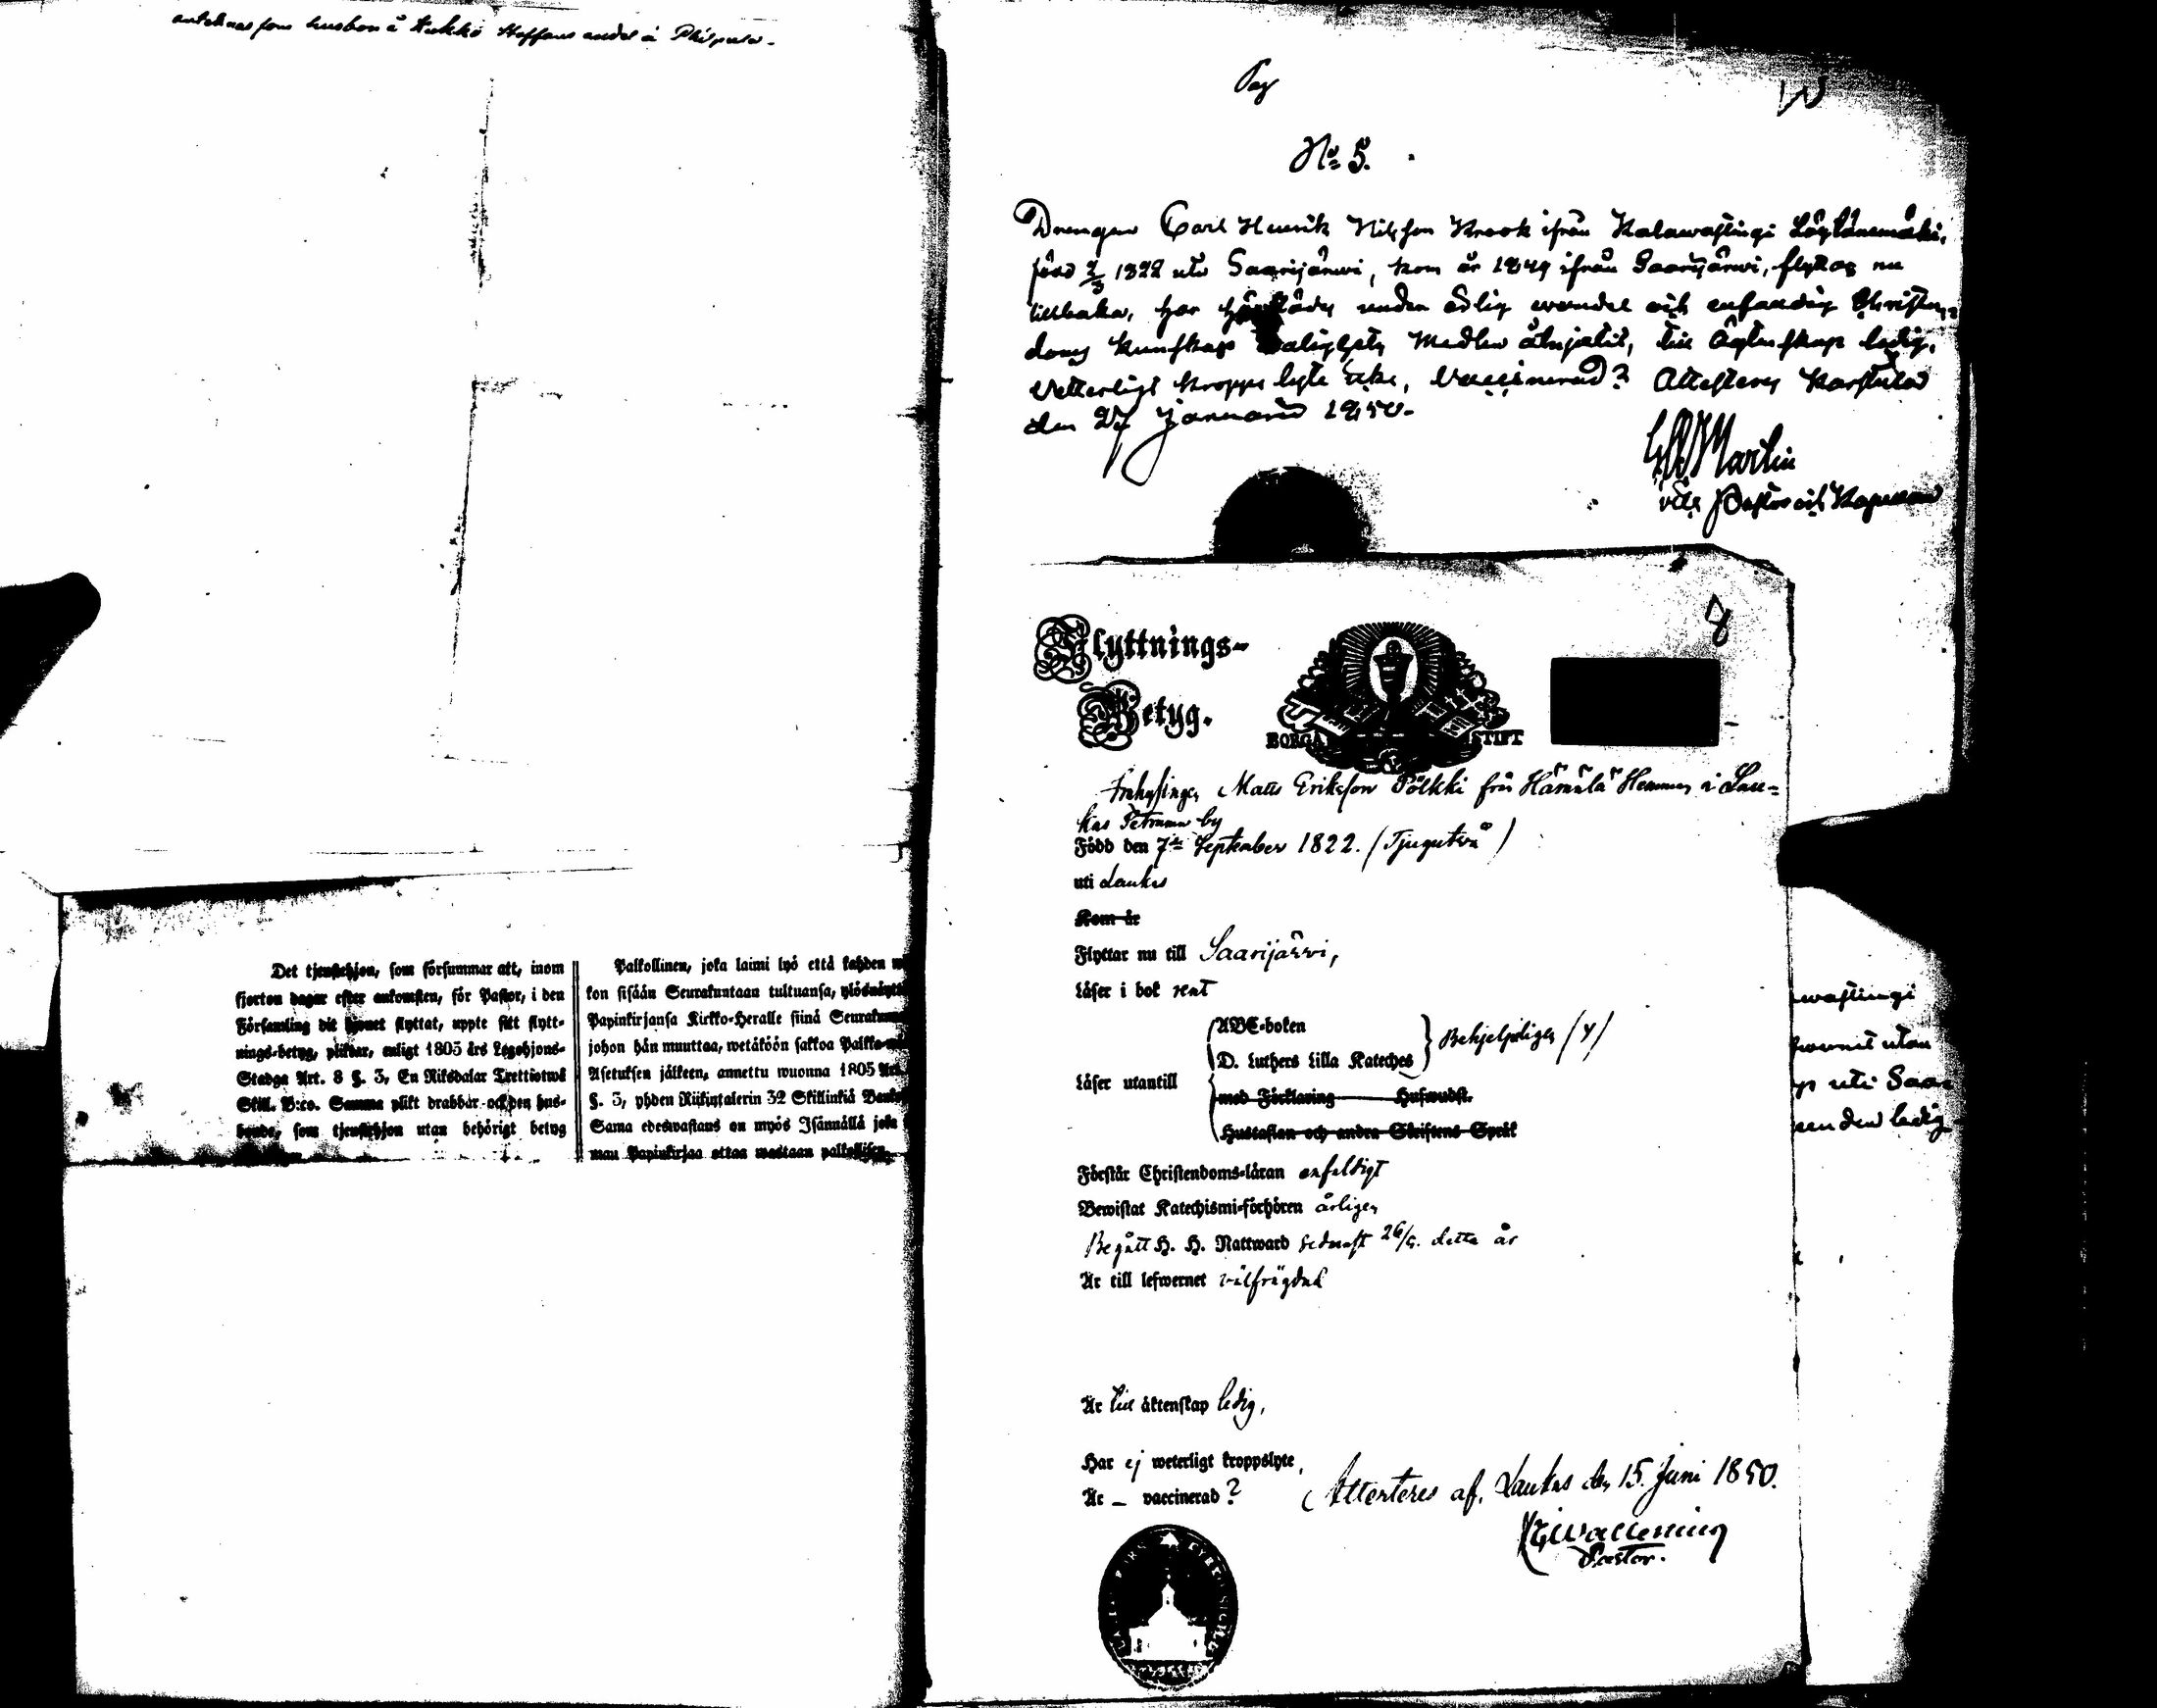 antecknas som husbon å Kukko Staffans andel i
Det tjenstehjon, som försummar att, inom
fjorton dagar efter ankomsten, för Pastor, i den
Församling dit hjonet flyttat, uppte sitt flytt-
nings-betyg, pliktar, enligt 1805 års Legohjons-
Stadga Art. 8 §. 3, En Riksdalar Trettiotwå
Skill. B:co. Samma plikt drabbar ock den hus-
bonde, som tjenstehjon utan behörigt betyg
Palkollinen, joka laimi lyö että kahden
kon sisään Seurakuntaan tultuansa, ylösnäyttä
Papinkirjansa Kirkko-Heralle siinä Seurakun
johon hän muuttaa, wetäköön sakkoa Palkka-
Asetuksen jälkeen, annettu wuonna 1805 Art.
§. 3, yhden Riikintalerin 32 Skillinkiä Banko
Sama edeswastaus on myös Isännällä joka
man Papinkirjaa ottaa wastaan palkollisen
Pag
N:o 5.
Drengen Carl Henrik Nilsson Krook ifrån Kalawastingi Löytänemäki,
född 2/3 1822 uti Saarijärwi, kom år 1849 ifrån Saarijärwi, flyttar nu
tillbaka, har härstädes under ärlig wandel och enfaldig Christen-
doms kunskap Salighets medlen åtnjutit, till Ägtenskap ledig,
Vetterligt kropps lyte icke, Vaccinerad? Attesteras Karstula
den 27 Januarii 1850.
Martin
v. Pastor och Kapellan
8
Flyttnings-
Betyg.
BORGÅ STIFT
Inhysingen Matts Eriksson Pölkki från Hämälä Hemman i Lau-
kas Petruma by
Född den 7de September 1822. (Tjugutvå)
uti Laukas
Kom år
Flyttar nu till Saarijärvi,
Läser i bok rent
ABC-boken
D. Luthers Lilla Kateches
Behjelpligen (y)
Läser utantill
med Förklaring Hufwudst.
Hustaflan och andra Skriftens Språk
Förstår Christendoms-läran enfeldigt
Bewistat Katechismi-förhören årligen
Begått H. H. Nattward sednast 26/5. detta år
Är till lefwernet välfrägdad
Är till äktenskap ledig,
Har ej weterligt kroppslyte,
Är _ vaccinerad?
Attesteres af, Laukas den 15. Juni 1850.
Wallenius
Pastor.
wastingi
wernet utan
uti Saar
ledig